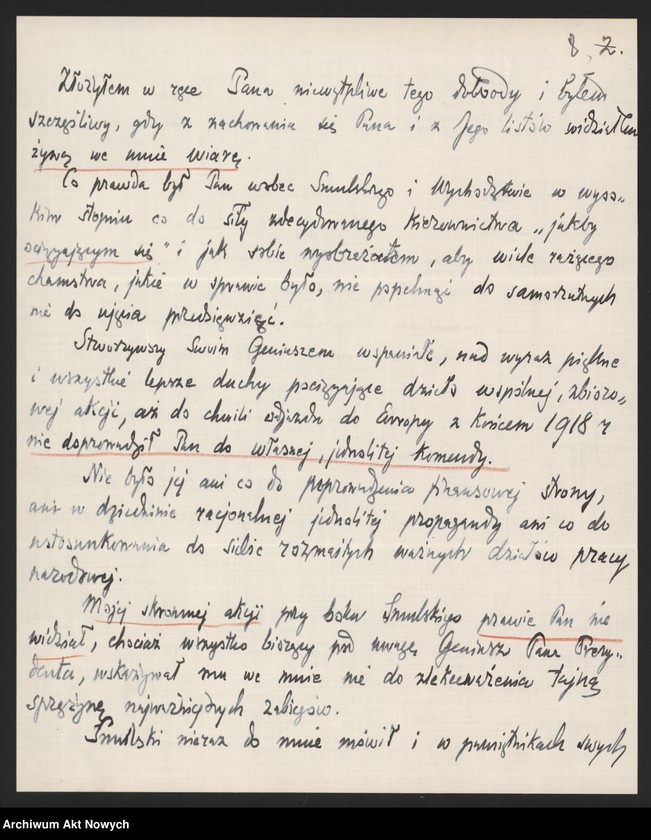 8 2.
Złożyłem w ręce Pana niewątpliwe tego dowody i byłem
szczęśliwy, gdy z zachowania się Pana i z Jego listów widziałem
żywą we mnie wiarę.
Co prawda był Pan wobec Smulskiego i Wychodźtwie w wyso-
kim stopniu co do siły zdecydowanego kierownictwa „jakby
ociągającym się" i jak sobie wyobrażałem, aby wiele rażącego
chamstwa, jakie w sprawie było, nie popchnąć do samorzutnych
nie do ujęcia przedsięwzięć.
Stworzywszy Swoim Geniuszem wspaniałe, nad wyraz piękne
i wszystkie lepsze duchy pociągające dzieło wspólnej, zbioro-
wej akcji, aż do chwili odjazdu do Europy z końcem 1918 r
nie doprowadził Pan do własnej, jednolitej komendy.
Nie było jej ani co do poprowadzenia finansowej strony,
ani w dziedzinie racjonalnej jednolitej propagandy ani co do
ustosunkowania do siebie rozmaitych ważnych działów pracy
narodowej.
Mojej skromnej akcji przy boku Smulskiego prawie Pan nie
widział, chociaż wszystko biorący pod uwagę Geniusz Pana Prezy-
denta, wskazywał mu we mnie nie do zlekceważenia tajną
sprężynę najważniejszych zabiegów.
Smulski nieraz do mnie mówił i w pamiętnikach swych
Archiwum Akt Nowych